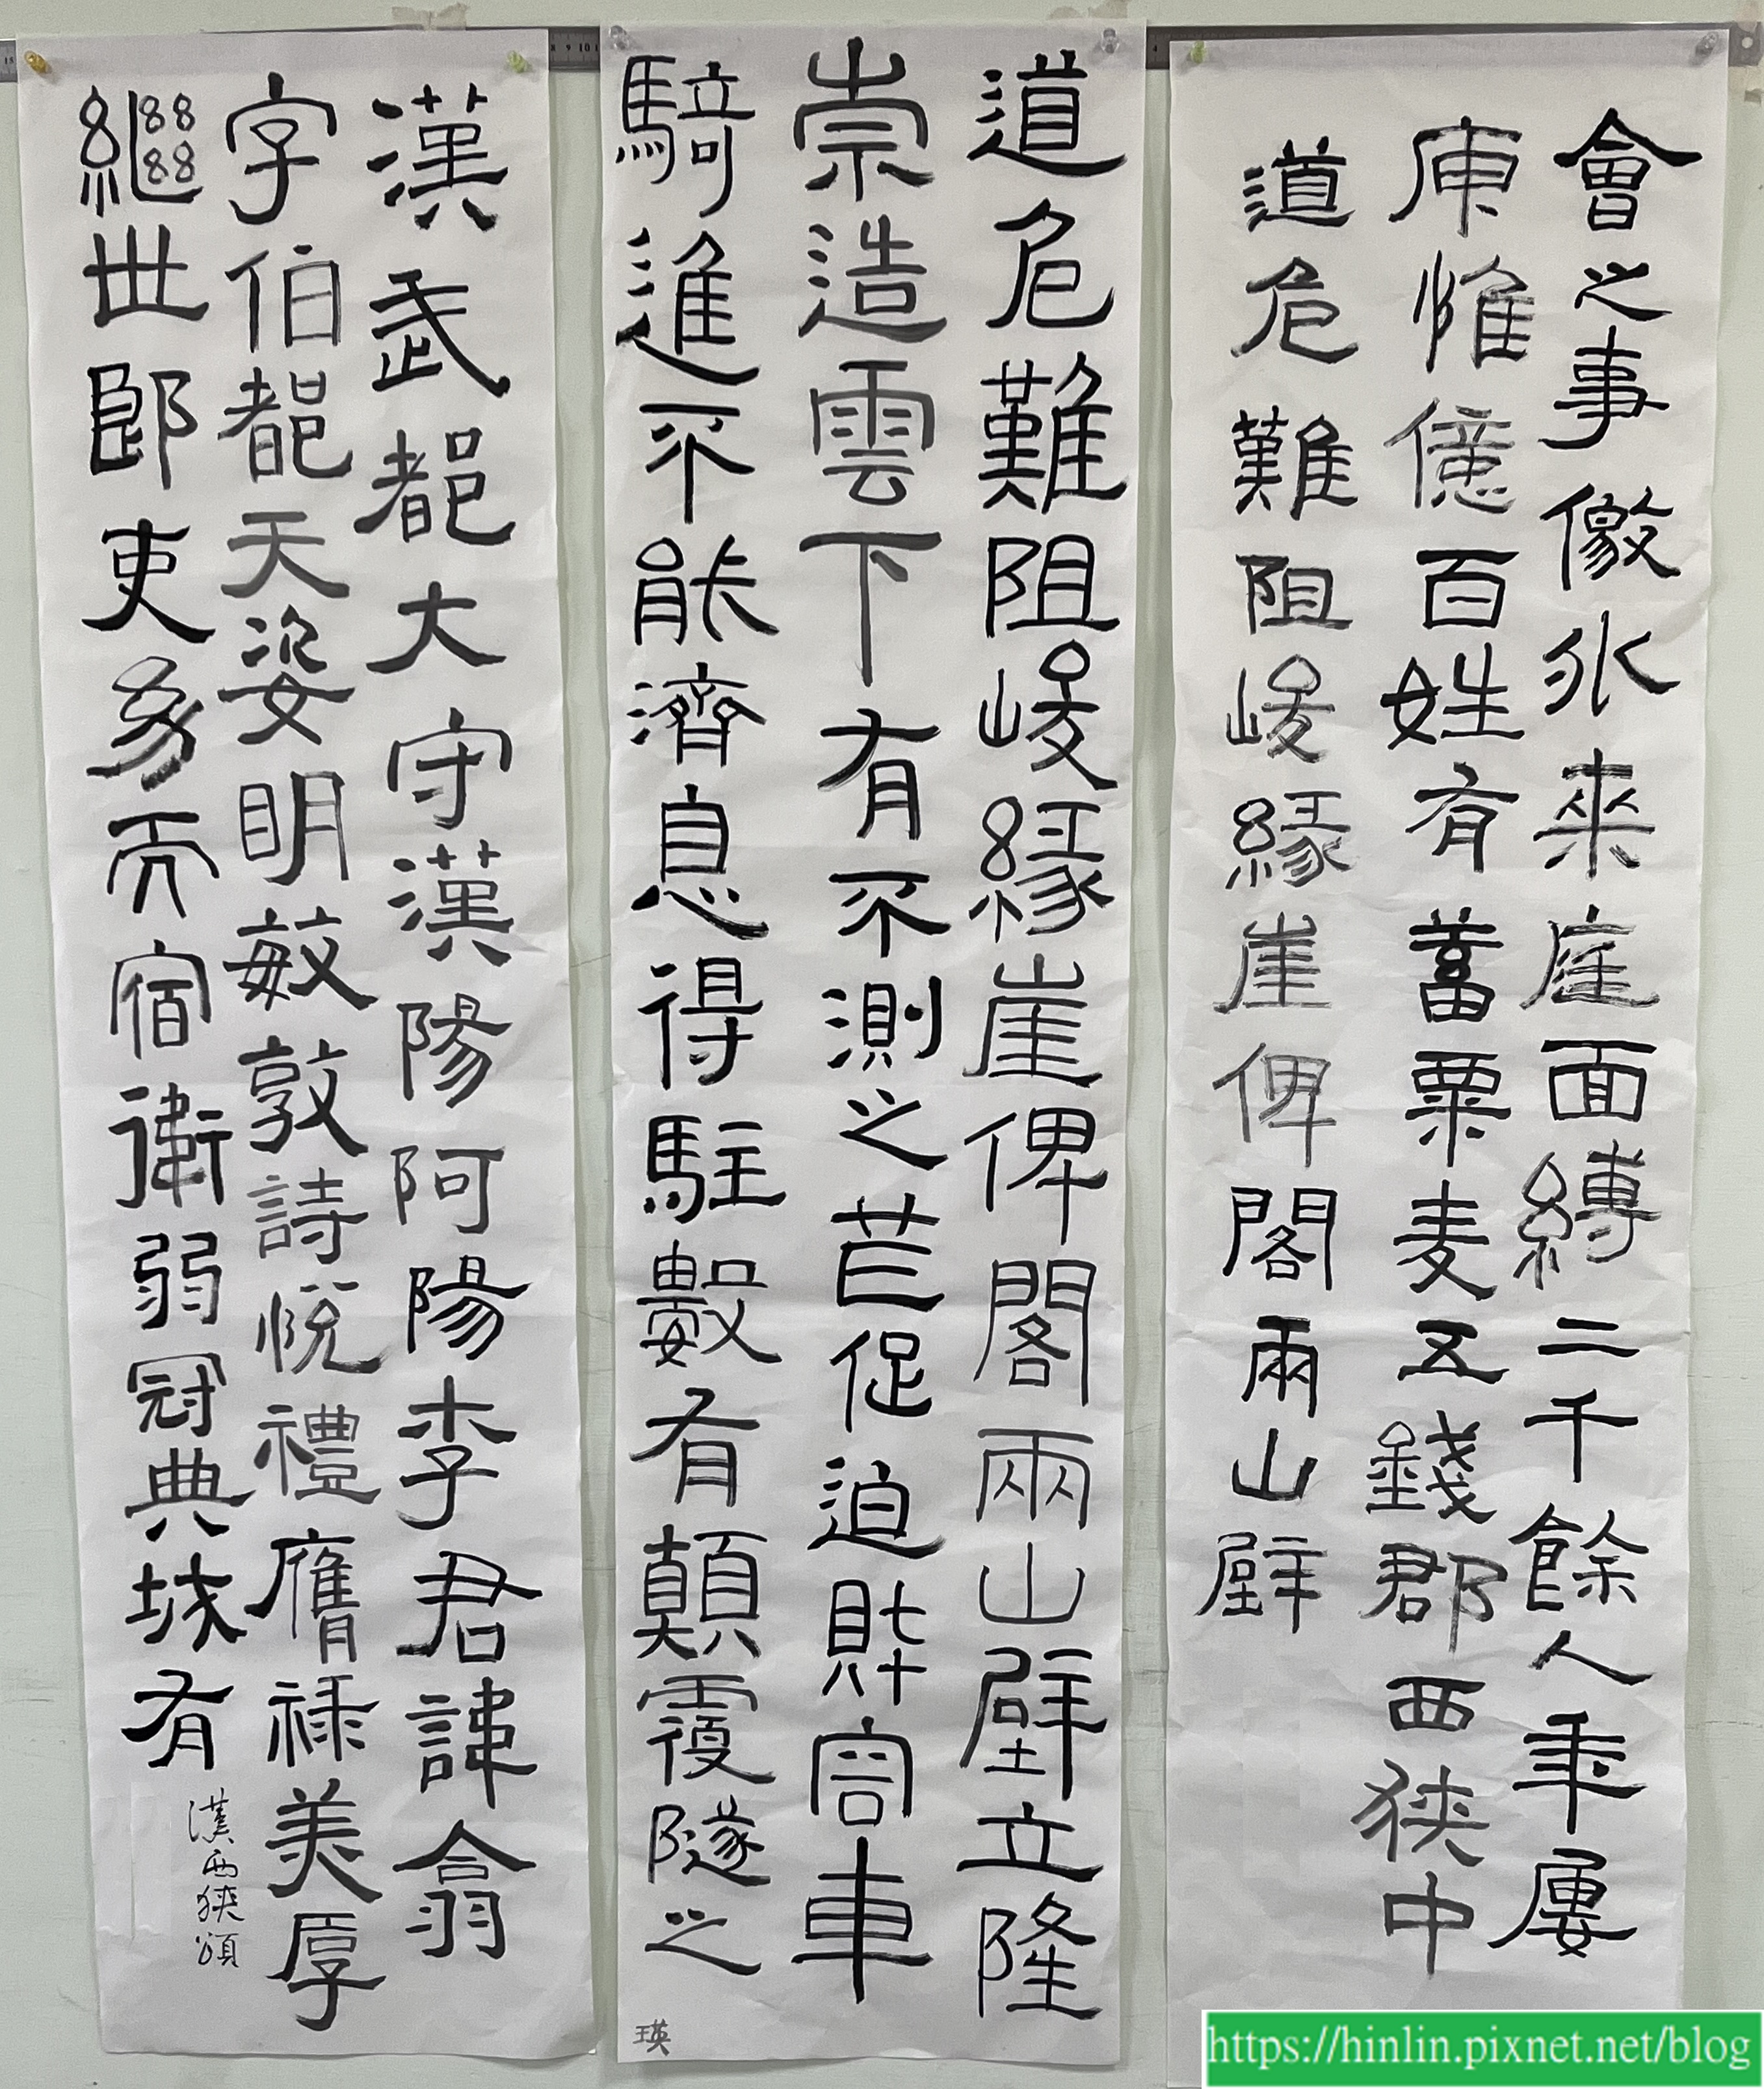 會之事儌外来庭面縛二千餘人年屢
庾惟億百姓有蓄粟麦五錢郡西狹中
道危難阻峻緣崖俾閣兩山壁
道危難阻峻緣崖俾閣兩山壁立隆
崇造雲下有不測之笮促迫財容車
騎進不能濟息得駐數有顛覆隧之
瑛
漢武都大守漢陽阿陽李君諱翕
字伯都天姿明敏敦詩悅禮膺祿美厚
繼世郎吏幼而宿衛弱冠典城有
漢西狹頌
https://hinlin.pixnet.net/blog